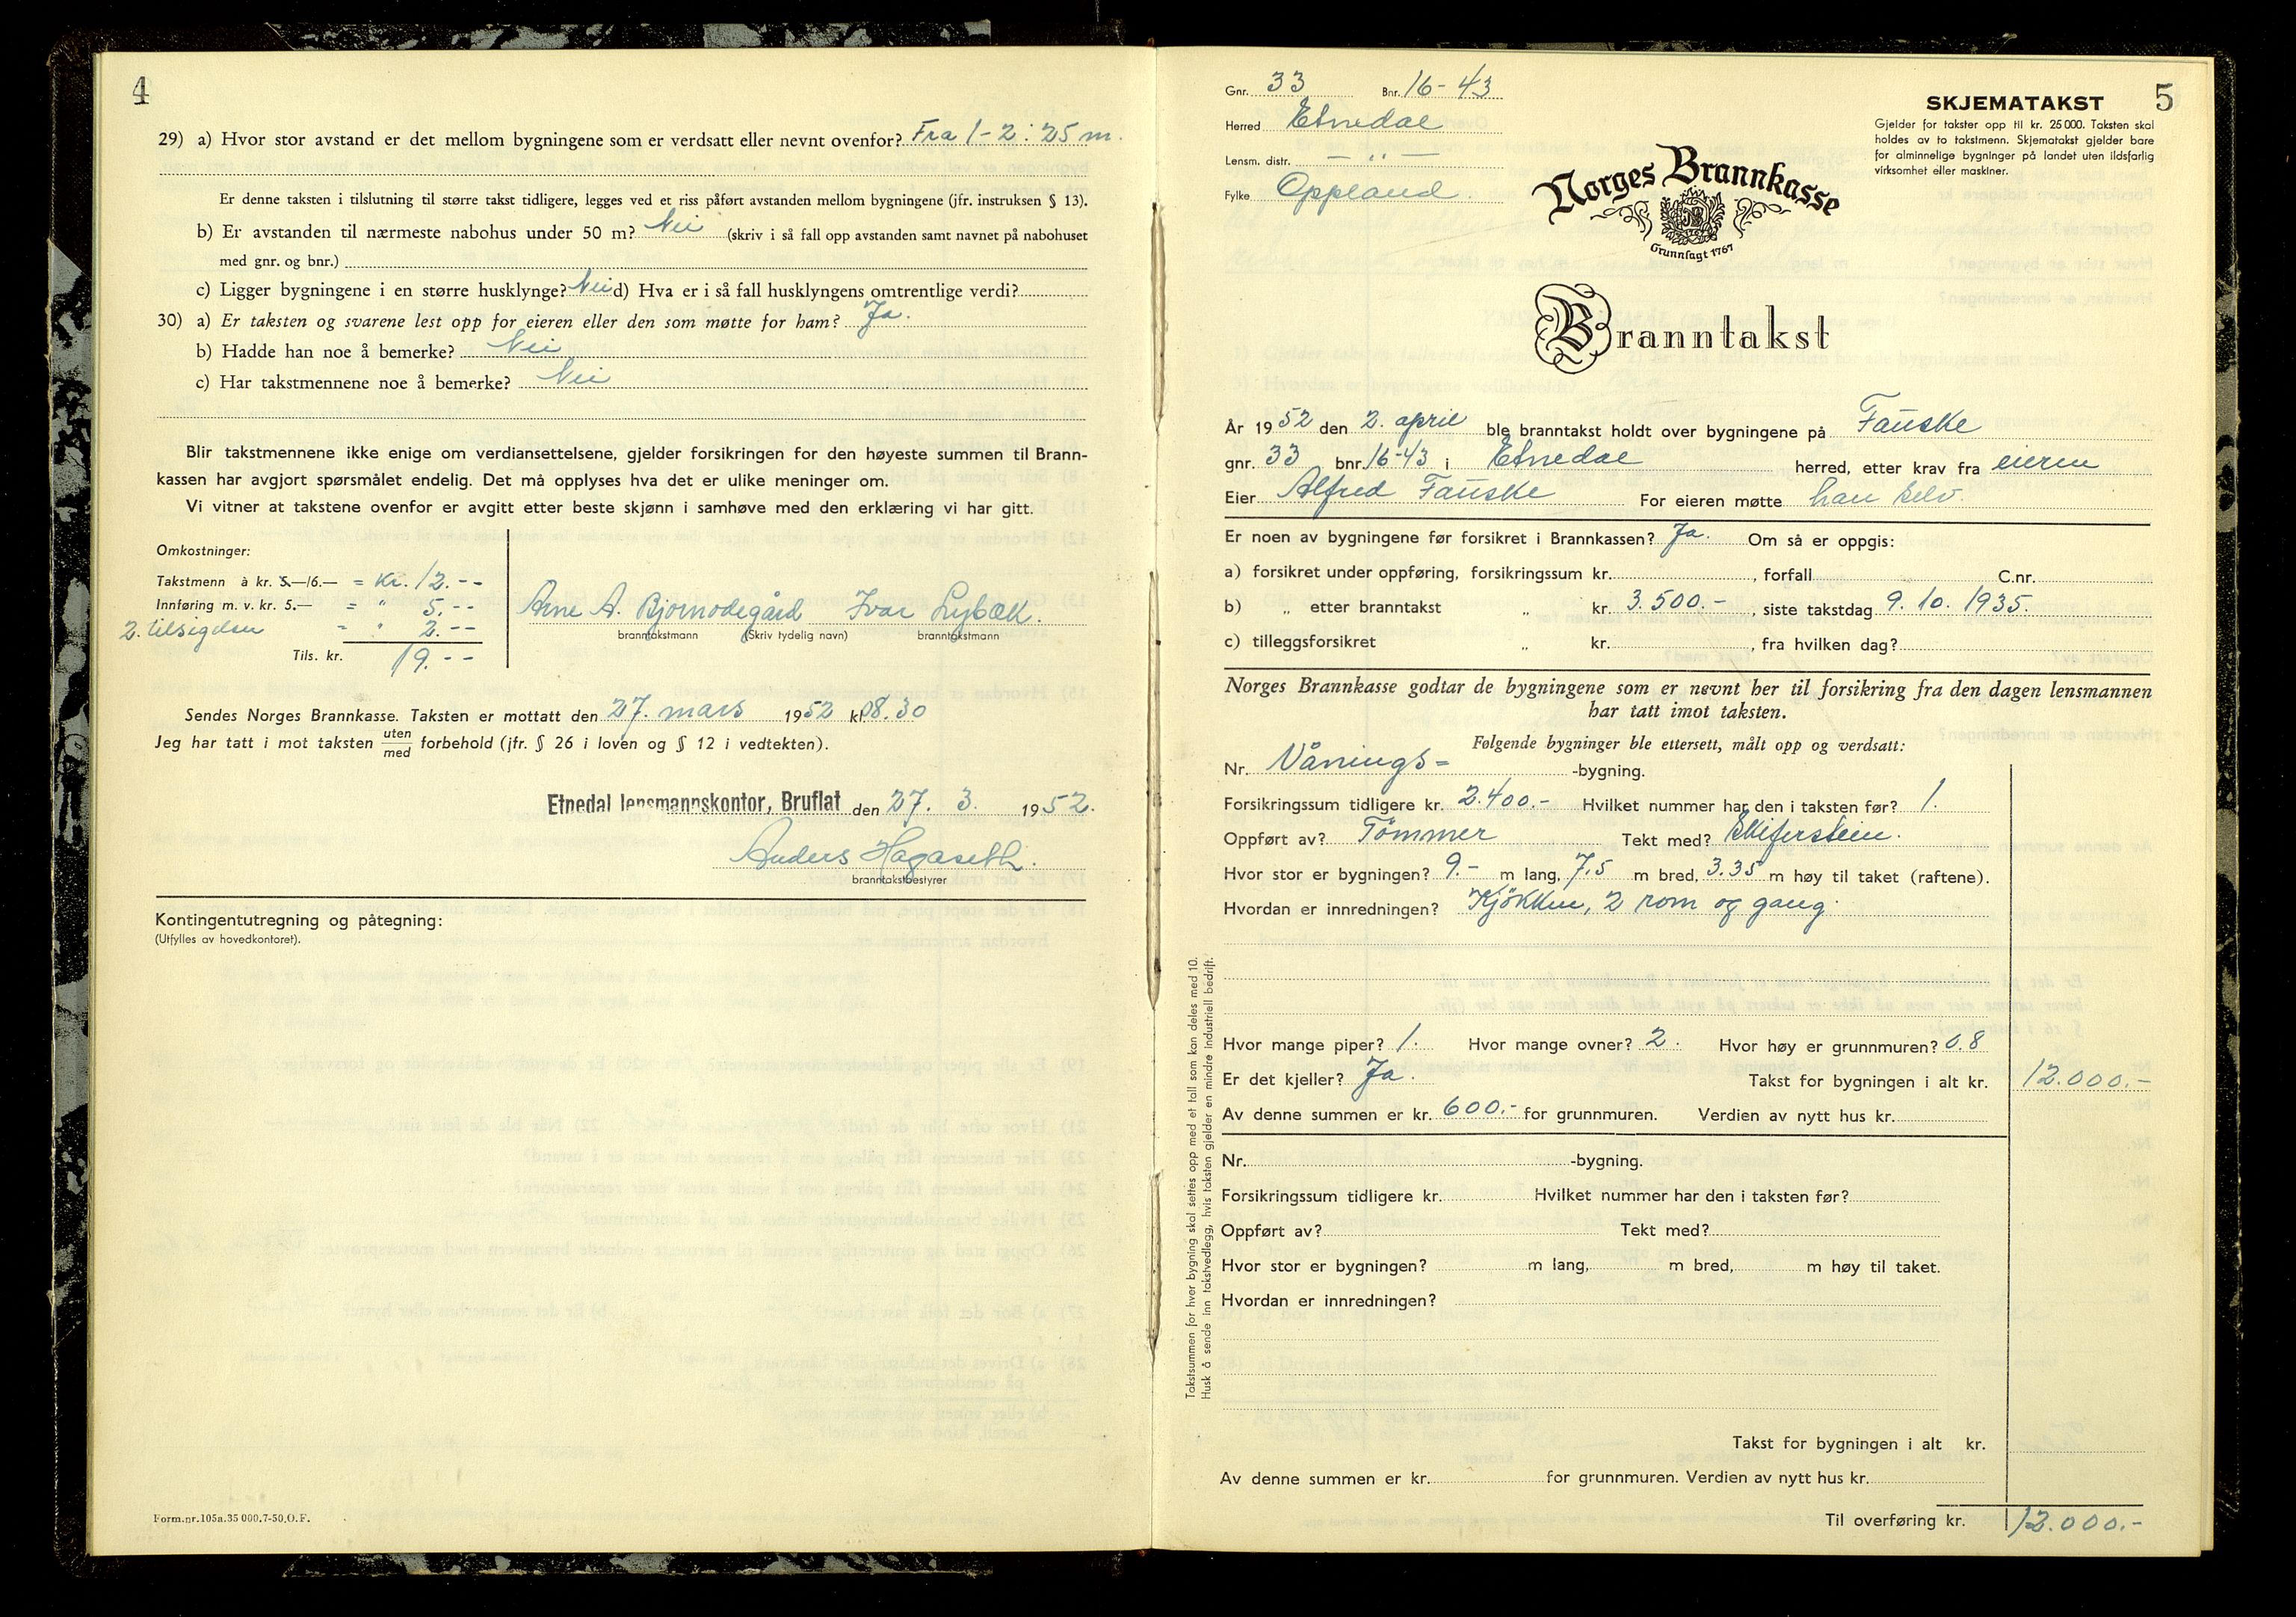 4
29) a) Hvor stor avstand er det mellom bygningene som er verdsatt eller nevnt ovenfor? Fra 1-2: 25 m.
Er denne taksten i tilslutning til større takst tidligere, legges ved et riss påført avstanden mellom bygningene (jfr. instruksen § 13).
b) Er avstanden til nærmeste nabohus under 50 m? Nei (skriv i så fall opp avstanden samt navnet på nabohuset
med gnr. og bnr.)
c) Ligger bygningene i en større husklynge? Nei d) Hva er i så fall husklyngens omtrentlige verdi?
30) a) Er taksten og svarene lest opp for eieren eller den som møtte for ham? Ja.
b) Hadde han noe å bemerke? Nei
c) Har takstmennene noe å bemerke? Nei
Blir takstmennene ikke enige om verdiansettelsene, gjelder forsikringen for den høyeste summen til Brann-
kassen har avgjort spørsmålet endelig. Det må opplyses hva det er ulike meninger om.
Vi vitner at takstene ovenfor er avgitt etter beste skjønn i samhøve med den erklæring vi har gitt.
Omkostninger:
Takstmenn à kr. 5.—/6.— = Kr. 12.--
Innføring m. v. kr. 5.— = " 5.--
2. tilsigelser = " 2.--
Tils. kr. 19.--
Arne A. Bjørnødegård Ivar Lybæk.
branntakstmann (Skriv tydelig navn) branntakstmann
Sendes Norges Brannkasse. Taksten er mottatt den 27. mars 1952 kl. 08.30
Jeg har tatt i mot taksten uten/med forbehold (jfr. § 26 i loven og § 12 i vedtekten).
Etnedal lensmannskontor, Bruflat den 27. 3. 1952.
Anders Hagaseth.
branntakstbestyrer
Kontingentutregning og påtegning:
(Utfylles av hovedkontoret).
Form.nr.105a.35 000.7-50.O.F.
5
Gnr. 33 Bnr. 16-43
Herred Etnedal
Lensm. distr. — " —
Fylke Oppland.
SKJEMATAKST
Gjelder for takster opp til kr. 25 000. Taksten skal
holdes av to takstmenn. Skjematakst gjelder bare
for alminnelige bygninger på landet uten ildsfarlig
virksomhet eller maskiner.
Norges Brannkasse
Grunnlagt 1767
Branntakst
År 1952 den 2. april ble branntakst holdt over bygningene på Fauske
gnr. 33 bnr. 16-43 i Etnedal herred, etter krav fra eieren
Eier Alfred Fauske For eieren møtte han selv.
Er noen av bygningene før forsikret i Brannkassen? Ja. Om så er oppgis:
a) forsikret under oppføring, forsikringssum kr. , forfall C.nr.
b) „ etter branntakst „ kr. 3.500.- , siste takstdag 9. 10. 1935.
c) tilleggsforsikret „ kr. , fra hvilken dag?
Norges Brannkasse godtar de bygningene som er nevnt her til forsikring fra den dagen lensmannen
har tatt imot taksten.
Følgende bygninger ble ettersett, målt opp og verdsatt:
Nr. Vånings= -bygning.
Forsikringssum tidligere kr. 2.400.- Hvilket nummer har den i taksten før? 1.
Oppført av? Tømmer Tekt med? Skiferstein.
Hvor stor er bygningen? 9.- m lang, 7,5 m bred, 3.35 m høy til taket (raftene).
Hvordan er innredningen? Kjøkken, 2 rom og gang.
Hvor mange piper? 1. Hvor mange ovner? 2. Hvor høy er grunnmuren? 0.8
Er det kjeller? Ja. Takst for bygningen i alt kr. 12.000.-
Av denne summen er kr. 600.- for grunnmuren. Verdien av nytt hus kr.
Nr. -bygning.
Forsikringssum tidligere kr. Hvilket nummer har den i taksten før?
Oppført av? Tekt med?
Hvor stor er bygningen? m lang, m bred, m høy til taket.
Hvordan er innredningen?
Takst for bygningen i alt kr.
Av denne summen er kr. for grunnmuren. Verdien av nytt hus kr.
Til overføring kr. 12.000.-
Takstsummen for hver bygning skal settes opp med et tall som kan deles med 10.
Husk å sende inn takstvedlegg, hvis taksten gjelder en mindre industriell bedrift.